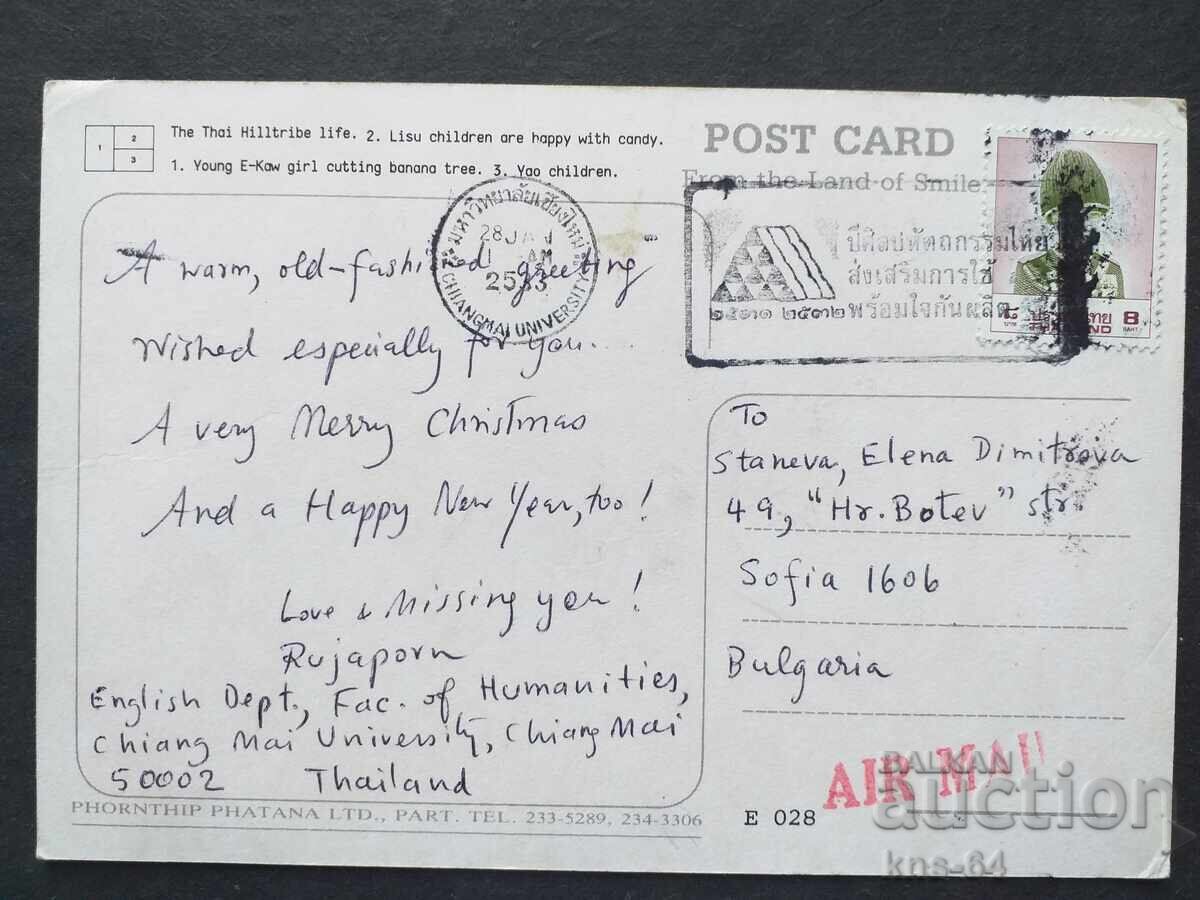 1
2
3
The Thai Hilltribe life. 2. Lisu children are happy with candy.
1. Young E-Kaw girl cutting banana tree. 3. Yao children.
POST CARD
From the Land of Smile
มหาวิทยาลัยเชียงใหม่
28 JAN
AM
2533
CHIANGMAI UNIVERSITY
ปีศิลปหัตถกรรมไทย
ส่งเสริมการใช้
๒๕๓๑ ๒๕๓๒ พร้อมใจกันผลิต
๘ ประเทศไทย 8
บาท THAILAND BAHT
A warm, old-fashioned greeting
Wished especially for you....
A very Merry Christmas
And a Happy New Year, too!
Love & Missing you!
Rujaporn
English Dept., Fac. of Humanities,
Chiang Mai University, Chiang Mai
50002 Thailand
To
Staneva, Elena Dimitrova
49, "Hr. Botev" str.
Sofia 1606
Bulgaria
AIR MAIL
PHORNTHIP PHATANA LTD., PART. TEL. 233-5289, 234-3306
E 028
BALKAN
auction
kns-64